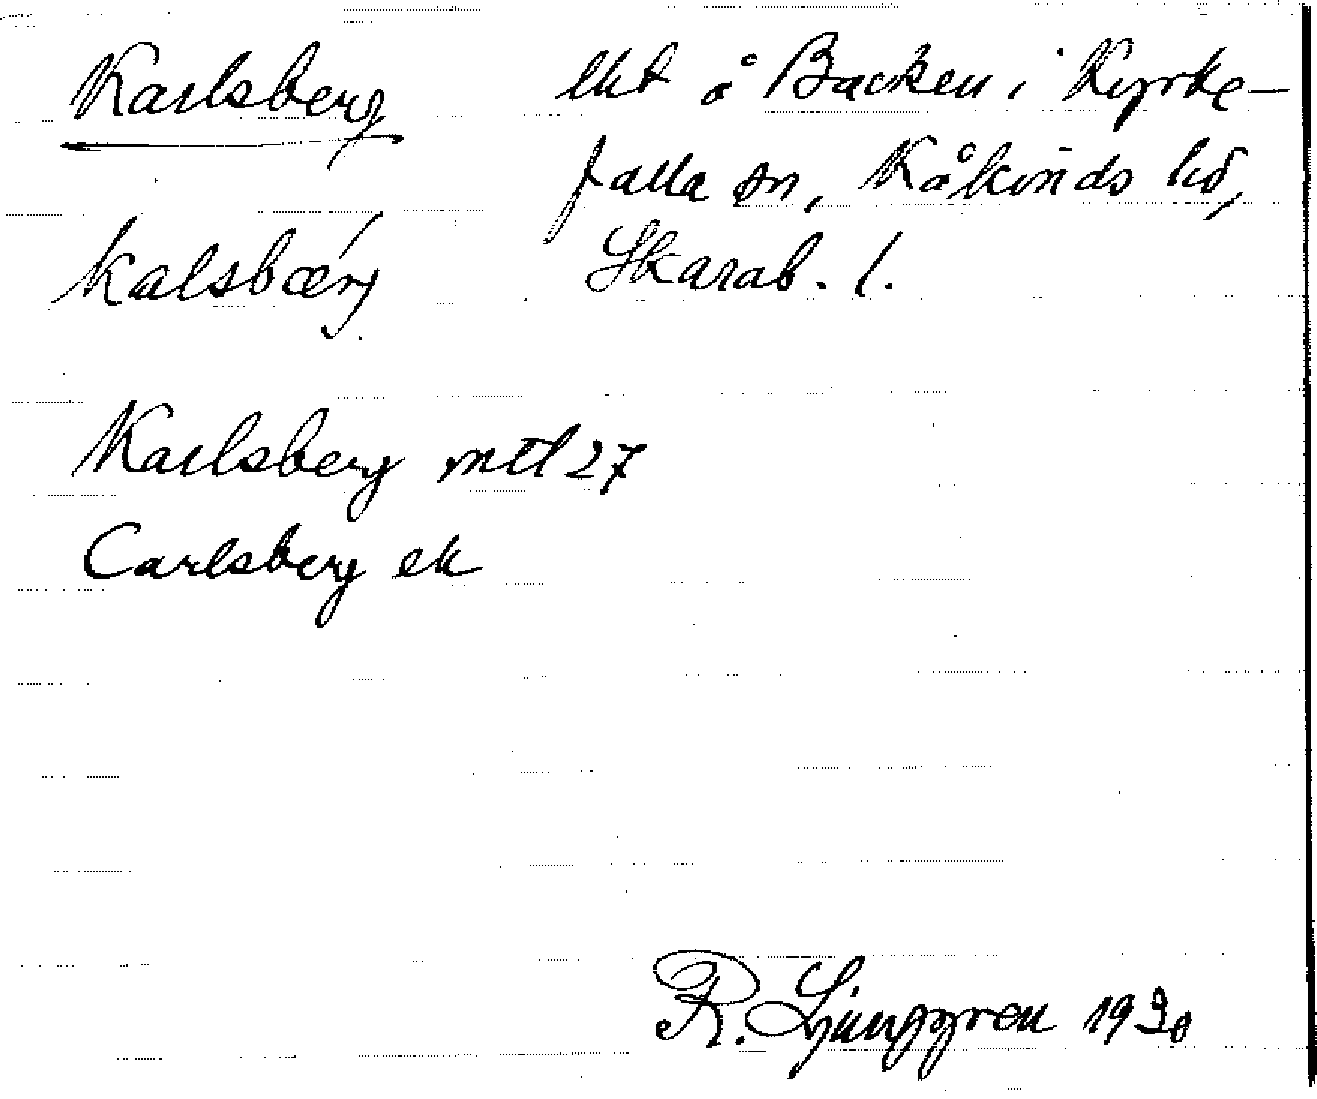 Karlsberg
lht å Backen i Kyrke-
falla sn, Kåkinds hd,
Skarab. l.
kalsbærj
Karlsberg mtl 27
Carlsberg ek
R. Ljunggren 1930